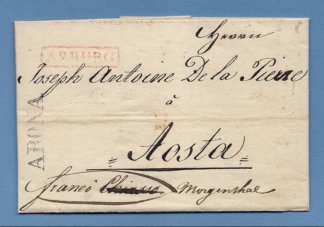 Herrn
AARBURG
Joseph Antoine De la Pierre
à
Aosta
ARONA
franco Chiasso Morgenthal